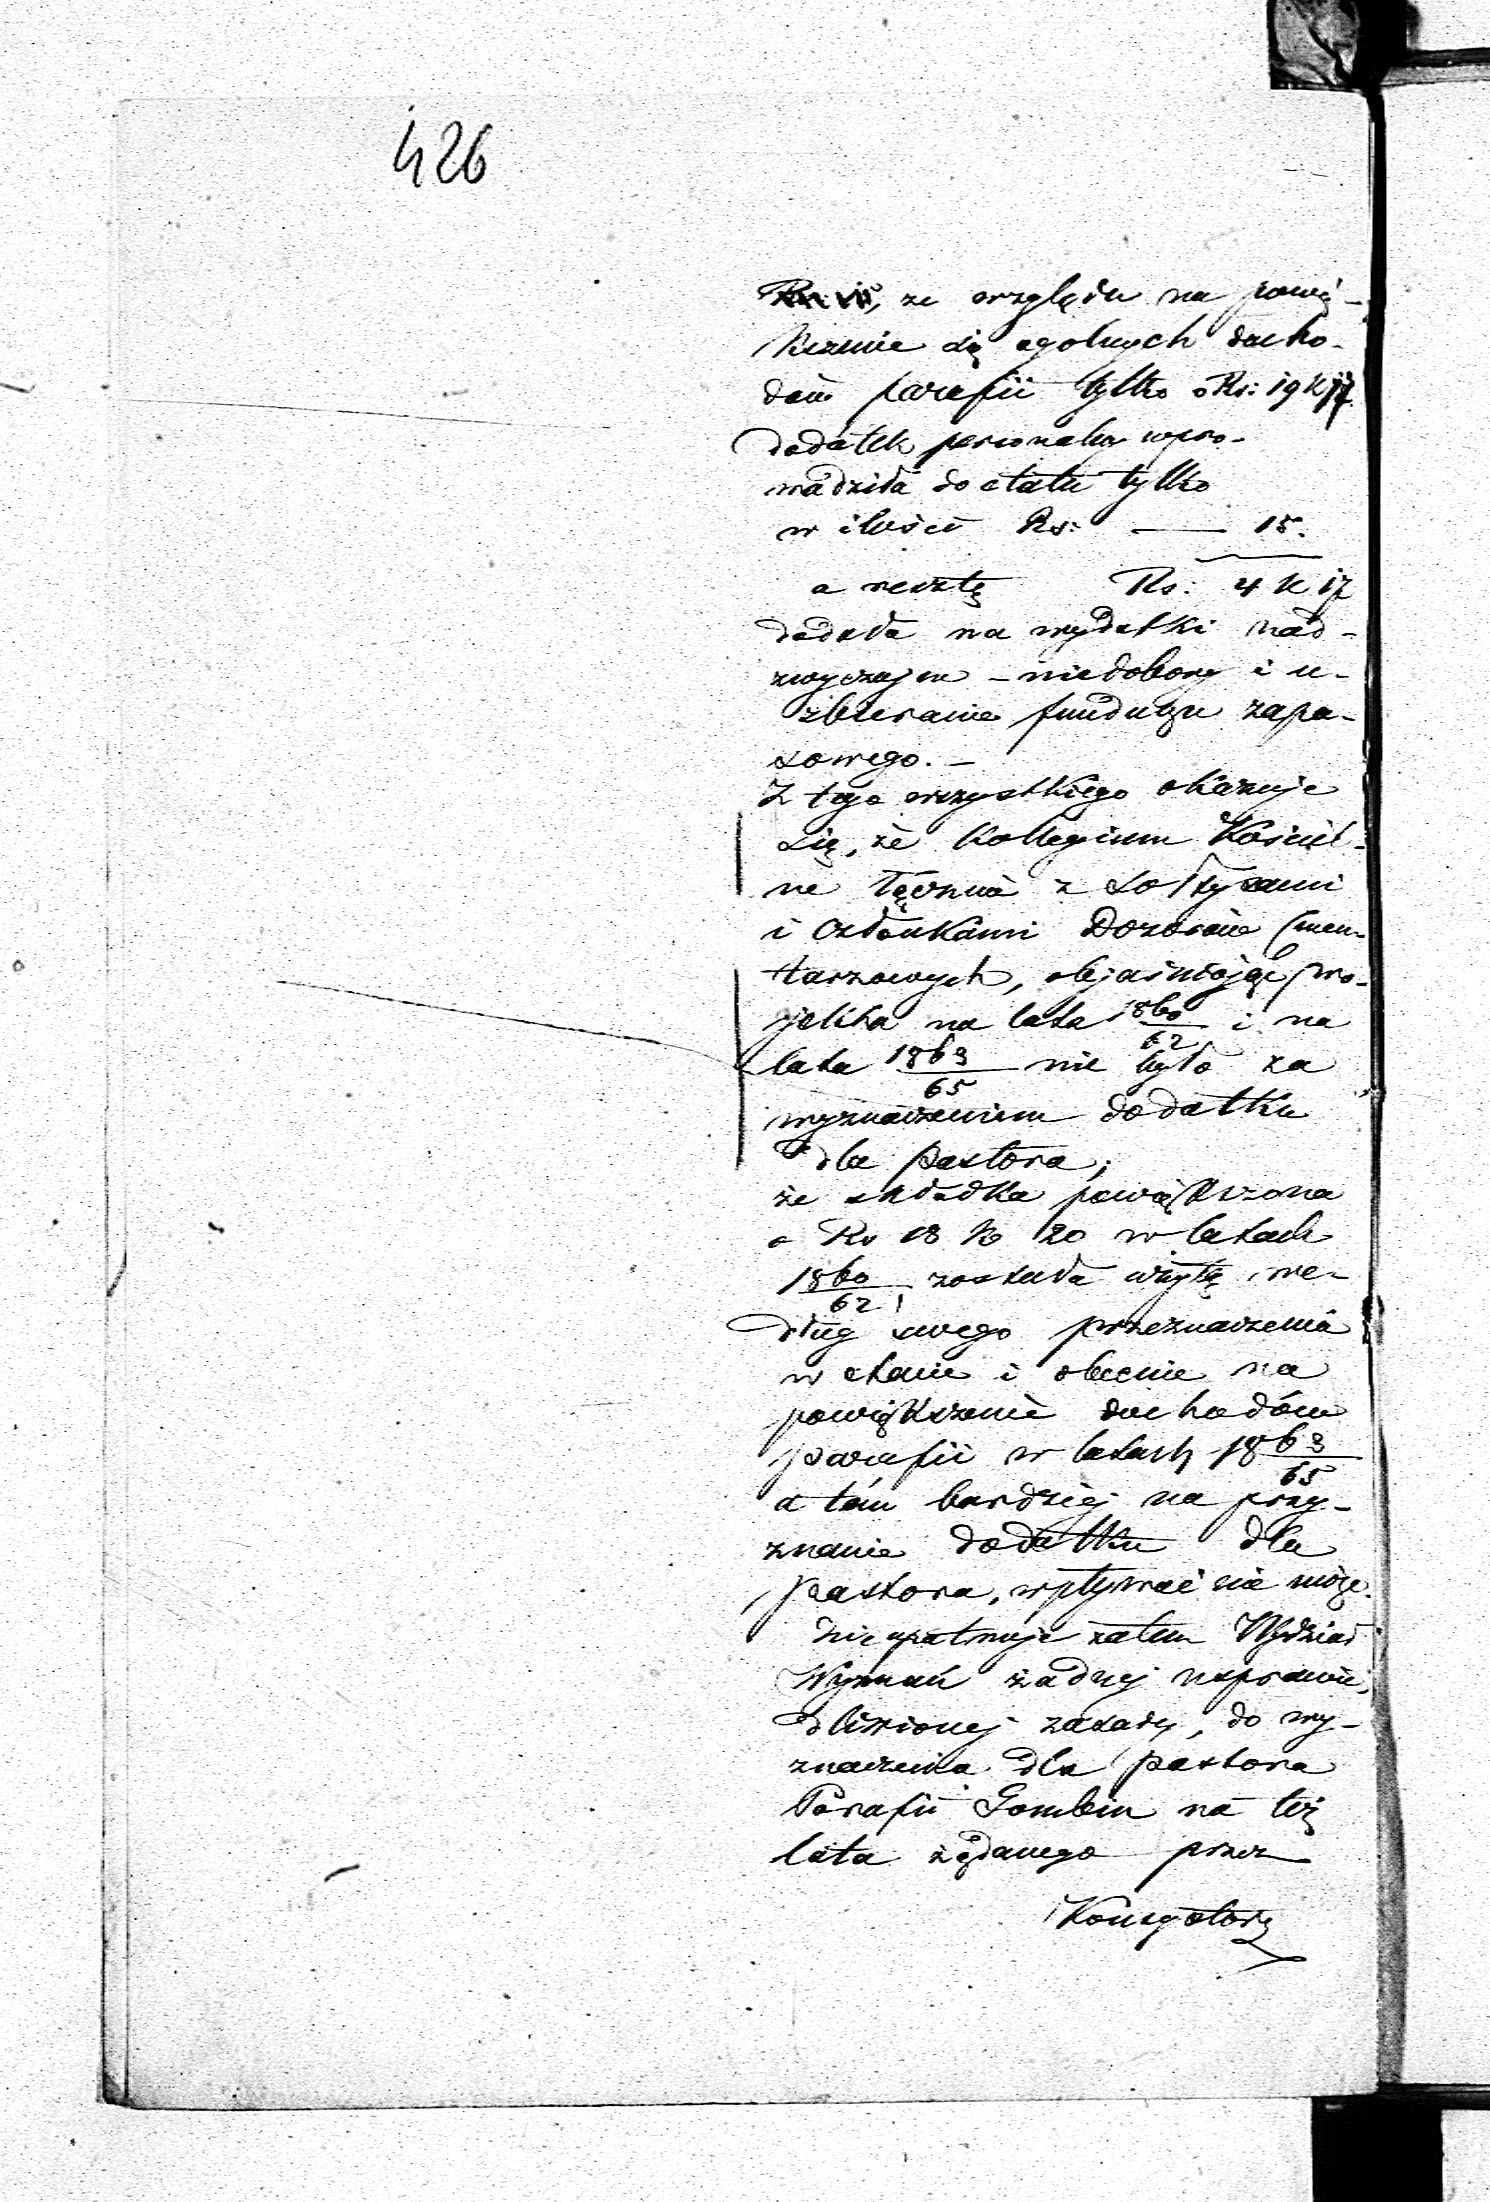 426
ze względu na powię-
kszenie się ogólnych docho-
dów parafii tylko o Rs: 19 k 17
dodatek personalny wpro-
wadziła do etatu tylko
w ilości Rs: — 15.
a resztę Rs: 4 k 17
dodała na wydatki nad-
zwyczajne – niedobory i u-
zbieranie funduszu zapa-
sowego. –
Z tego wszystkiego okazuje
się, że Kollegium Kościel-
ne łącznie z Sołtysami
i Członkami Dozorów Cmen-
tarzowych, objaśniając pro-
jekta na lata 1860/62 i na
lata 1863/65 nie było za
wyznaczeniem dodatku
dla pastora;
że składka powiększona
o Rs 18 k 20 w latach
1860/62, została użytą we-
dług swego przeznaczenia
w etacie i obecnie na
powiększenie dochodów
parafii w latach 1863/65
a tém bardziej na przy-
znanie dodatku dla
pastora, wpływać nie może.
Nie upatruje zatem Wydział
Wyznań żadnej usprawie-
dliwionej zasady, do wy-
znaczenia dla pastora
Parafii Gombin na też
lata żądanego przez
Konsystorz